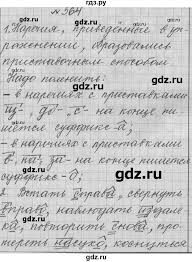 гдз.ру
№ 564
gdz.ru
1. Наречия, приведенные в уп-
ражнении, образовались
приставочным способом
gdz.ru
Надо помнить:
- в наречиях с приставками
из-, до-, с- на конце пи-
gdz.ru
шется суффикс -а;
- в наречиях с приставками
в-, на-, за- на конце пишется
суффикс -о;
gdz.ru
2. Встать вправо, свернуть
вправо, наблюдать издале-
gdz.ru
ка, повторить снова, про-
тереть насухо, коснуться
gdz.ru